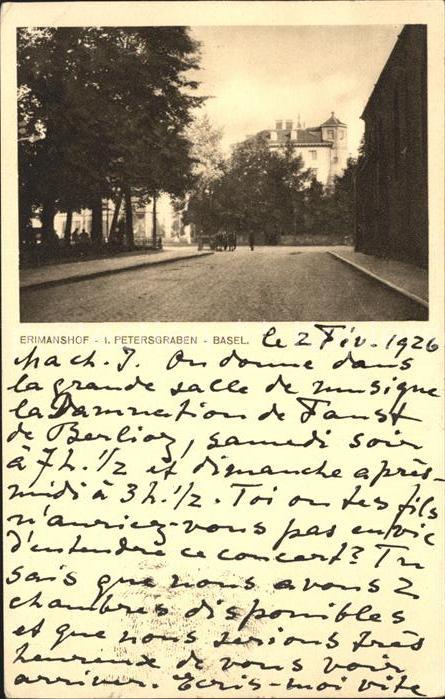 ERIMANSHOF - I. PETERSGRABEN - BASEL.
le 2 Fév. 1926
Ma ch. J. On donne dans
la grande salle de musique
la Damnation de Faust
de Berlioz, samedi soir
à 7h. 1/2 et dimanche après-
midi à 3h. 1/2. Toi ou tes fils
n'auriez-vous pas envie
d'entendre ce concert? Tu
sais que nous avons 2
chambres disponibles
et que nous serions très
heureux de vous voir
arriver. Ecris-moi vite